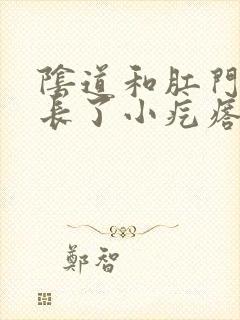 陰道和肛門
長了小疙瘩
鄭智